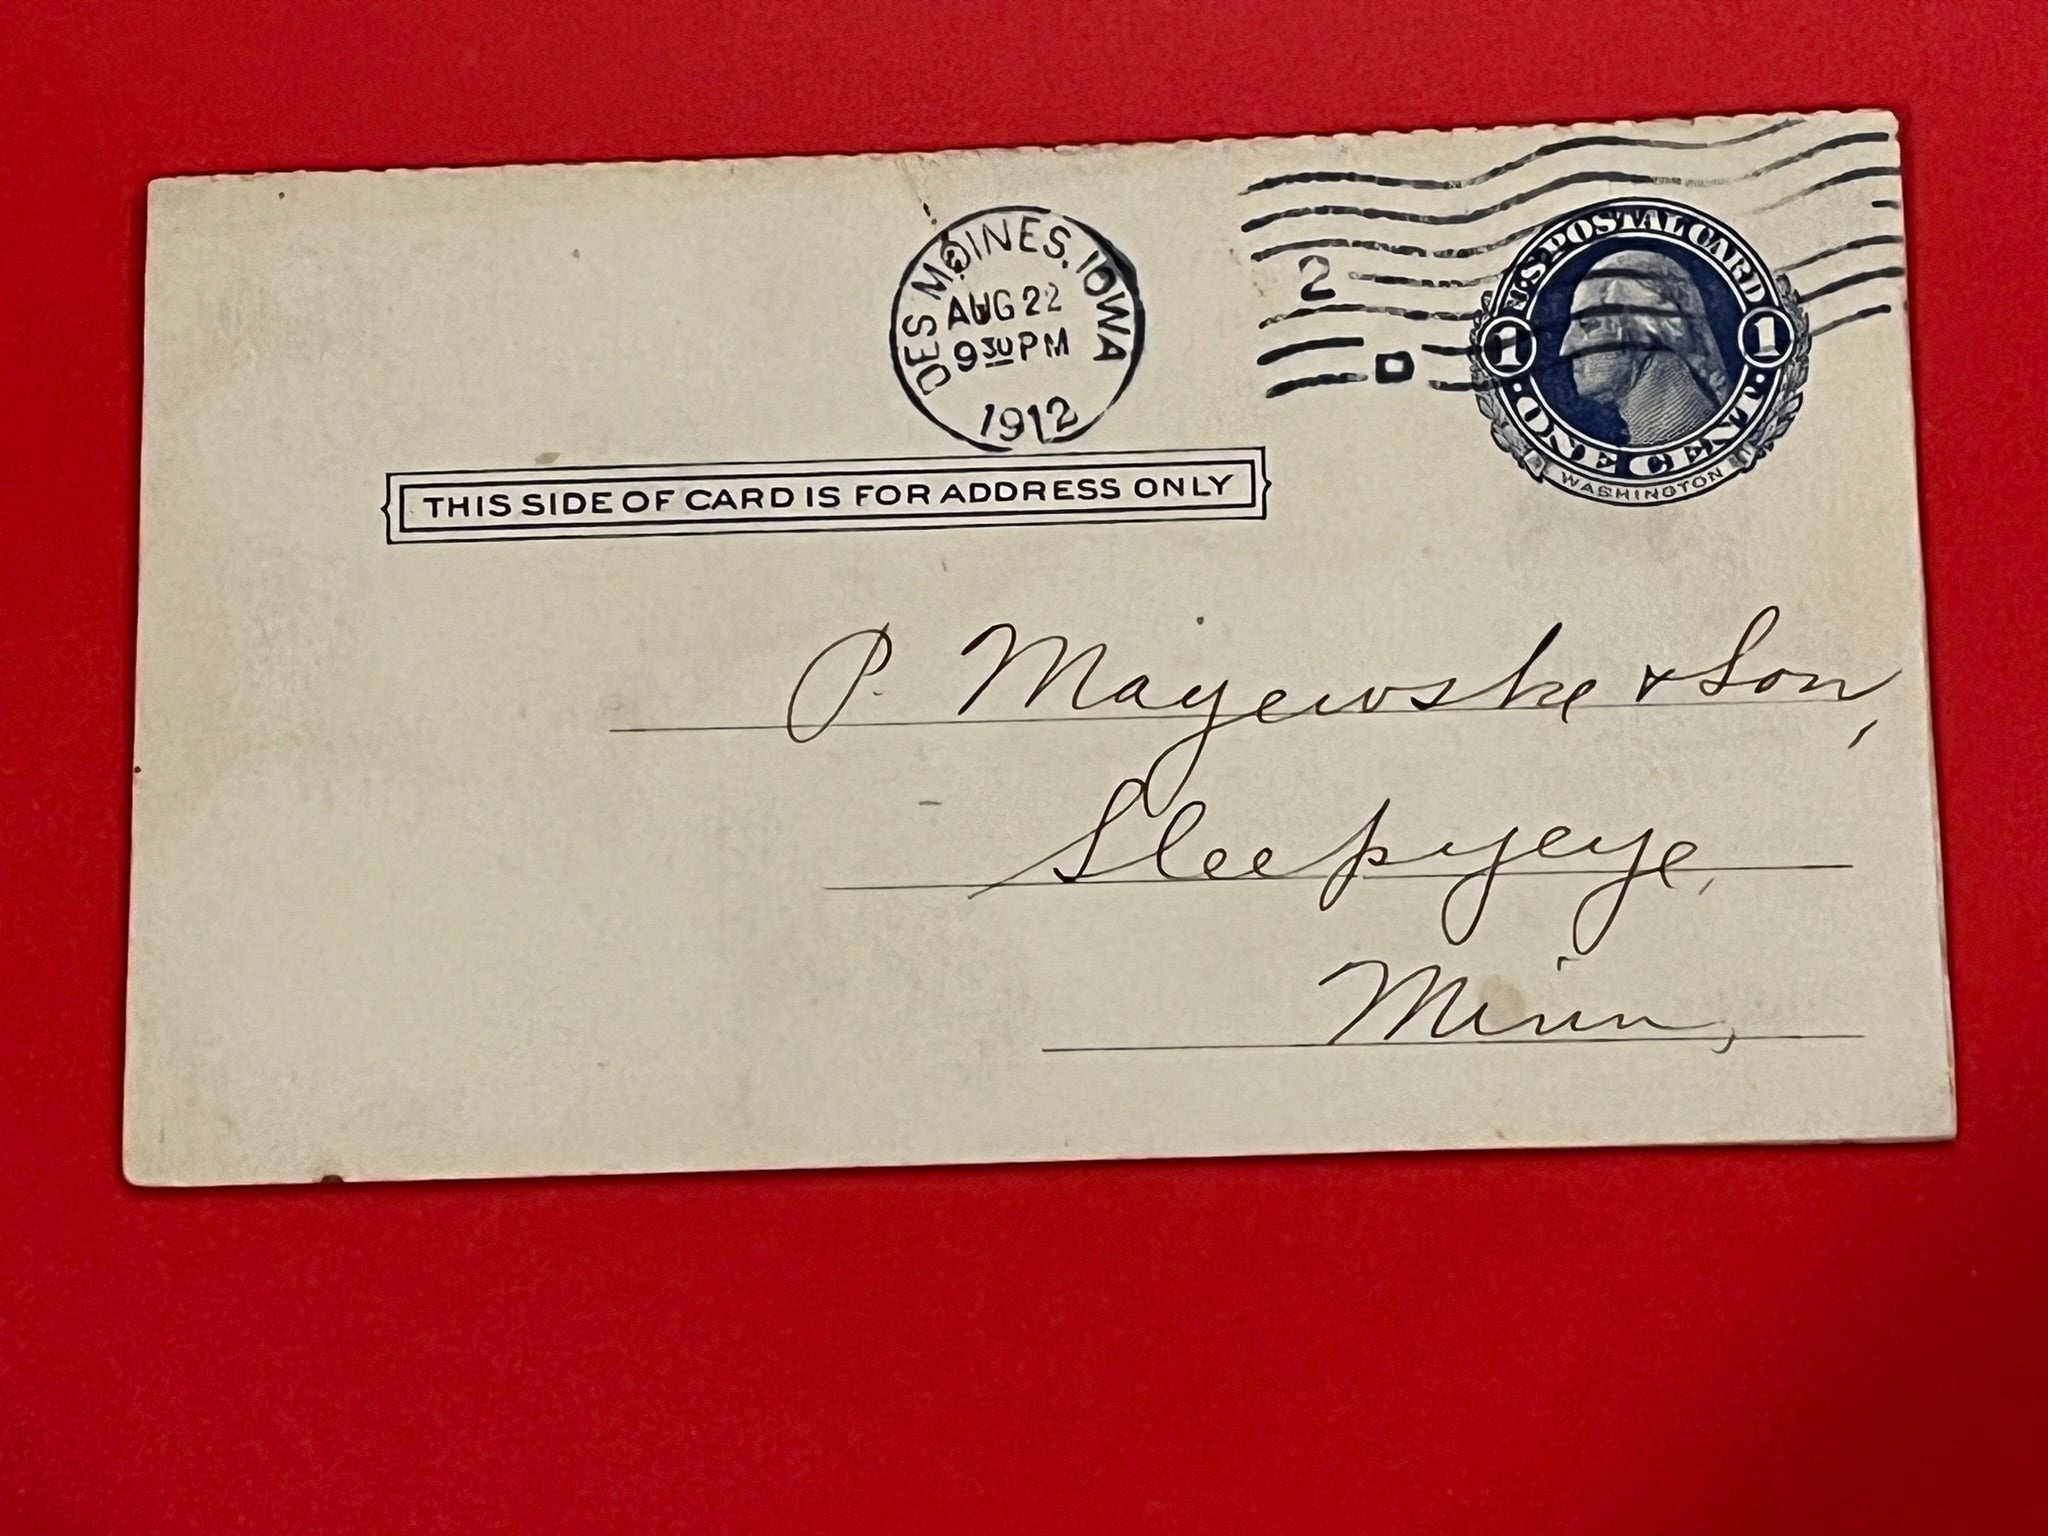 DES MOINES, IOWA
AUG 22
9 30 PM
1912
2
U.S. POSTAL CARD
1 1
ONE CENT
WASHINGTON
THIS SIDE OF CARD IS FOR ADDRESS ONLY
P. Mayewske & Son,
Sleepyeye,
Minn,